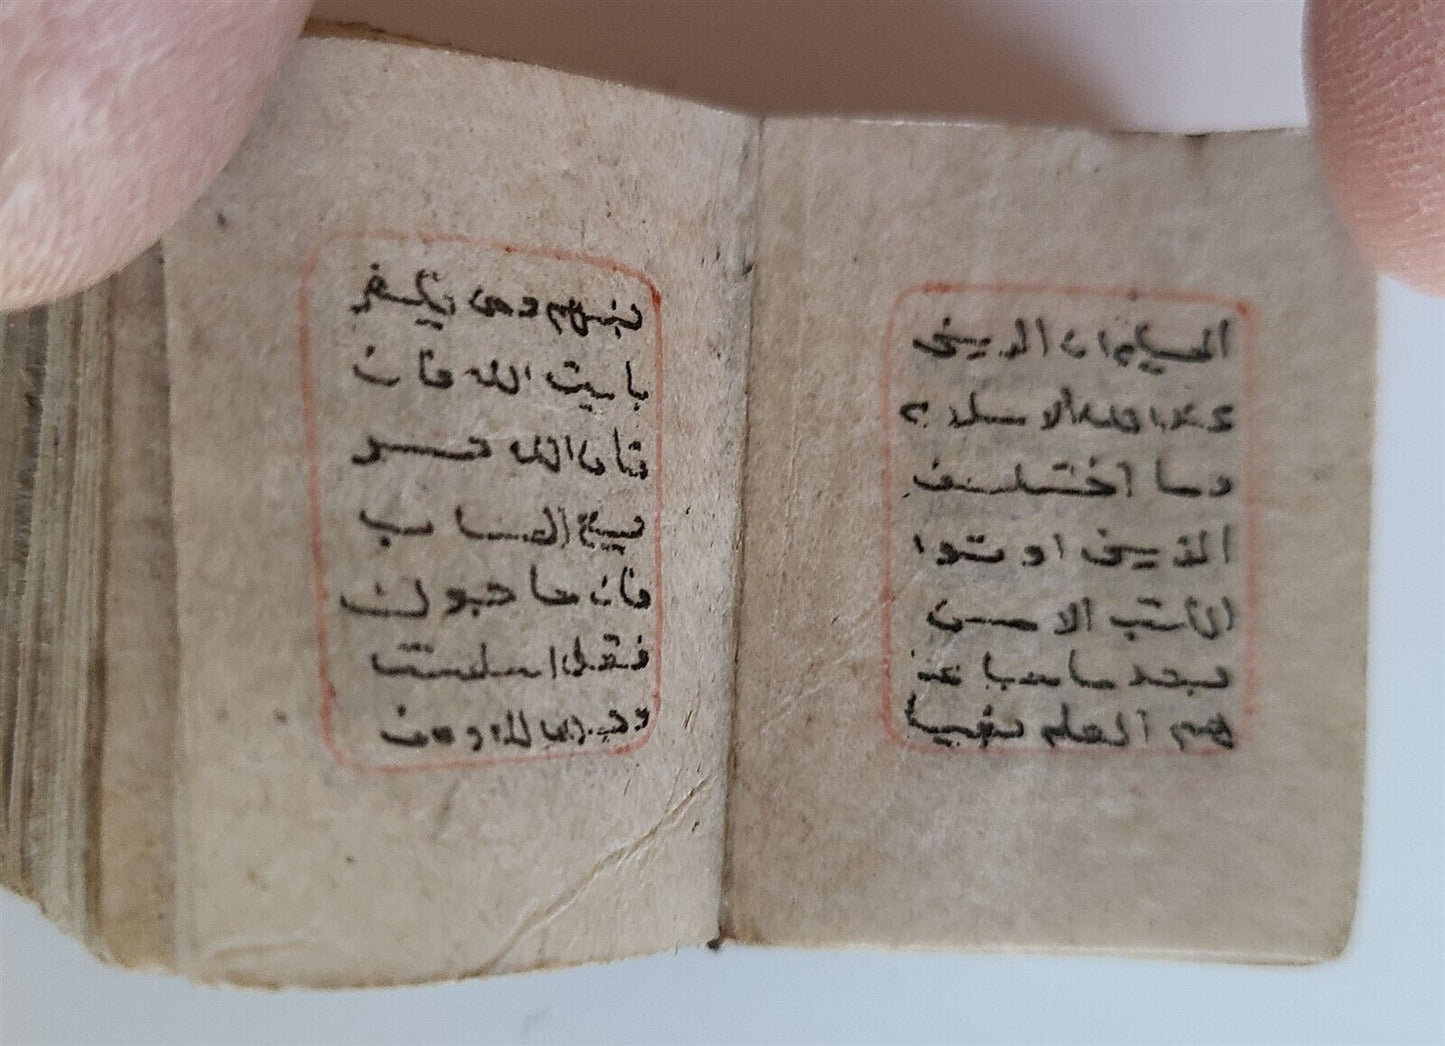 الحكيم ان الدين
عند الله الاسلام
وما اختلف
الذين اوتوا
الكتب الا من
بعد ما جاء
هم العلم بغيا
بينهم ومن يكفر
بايت الله فان
فان الله سر
يع الحساب
فان حاجوك
فقل اسلمت
وجهي لله ومن